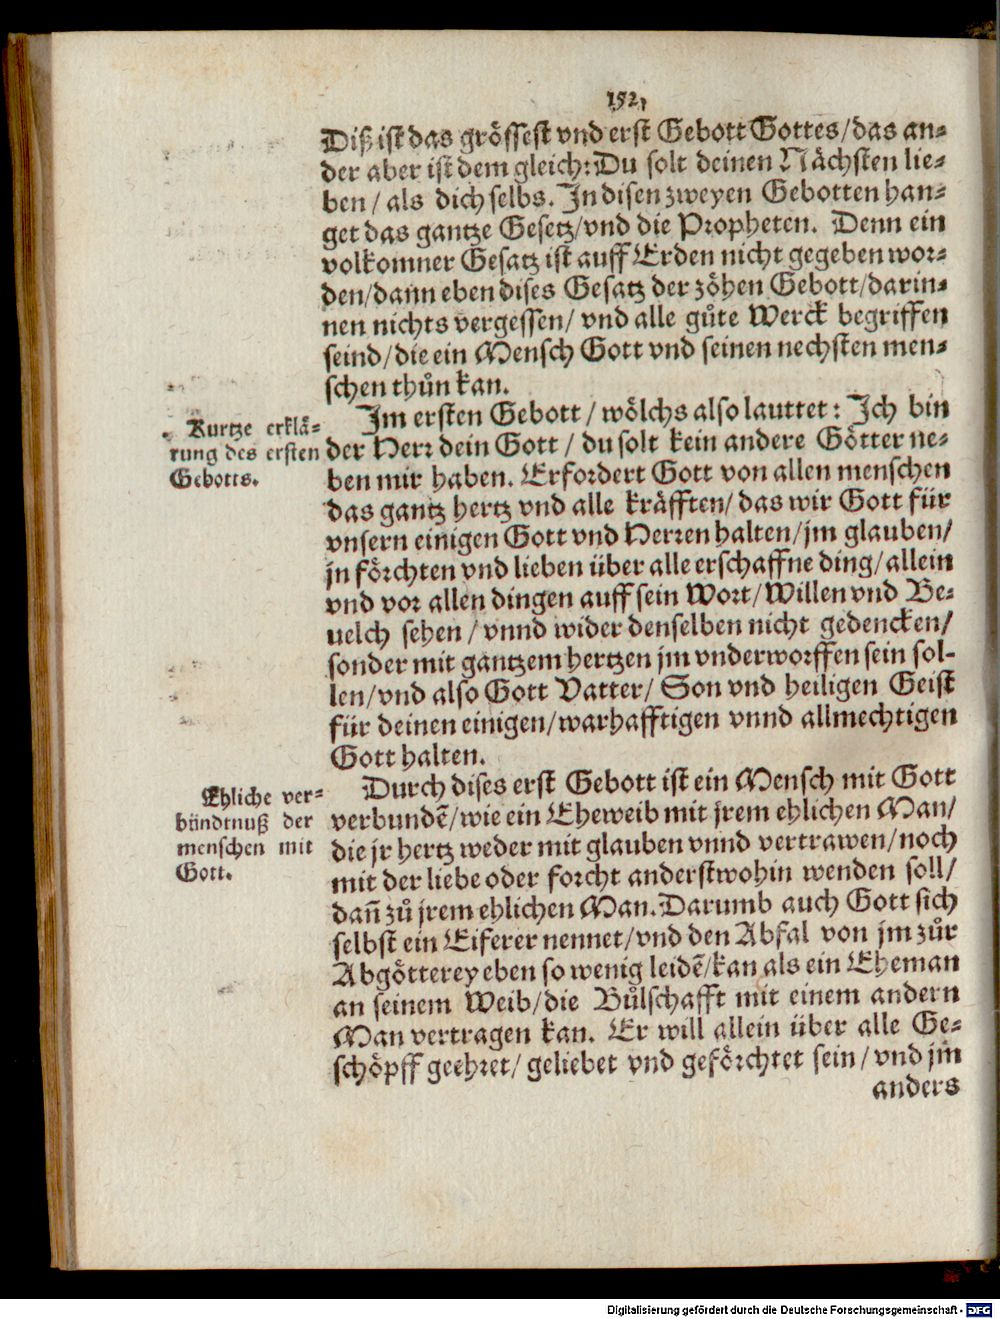 152,
Diß ist das grössest vnd erst Gebott Gottes/das an-
der aber ist dem gleich: Du solt deinen Nächsten lie-
ben / als dich selbs. In disen zweyen Gebotten han-
get das gantze Gesetz/vnd die Propheten. Denn ein
volkomner Gesatz ist auff Erden nicht gegeben wor-
den/dann eben dises Gesatz der zöhen Gebott/darin-
nen nichts vergessen/ vnd alle gůte Werck begriffen
seind/die ein Mensch Gott vnd seinen nechsten men-
schen thůn kan.
Kurtze erklä-
rung des ersten
Gebotts.
Im ersten Gebott / wölchs also lauttet: Ich bin
der Herr dein Gott / du solt kein andere Götter ne-
ben mir haben. Erfordert Gott von allen menschen
das gantz hertz vnd alle kräfften/ das wir Gott für
vnsern einigen Gott vnd Herren halten/jm glauben/
jn förchten vnd lieben über alle erschaffne ding/allein
vnd vor allen dingen auff sein Wort/Willen vnd Be-
uelch sehen / vnnd wider denselben nicht gedencken/
sonder mit gantzem hertzen jm vnderworffen sein sol-
len/vnd also Gott Vatter/ Son vnd heiligen Geist
für deinen einigen/warhafftigen vnnd allmechtigen
Gott halten.
Ehliche ver-
bündtnuß der
menschen mit
Gott.
Durch dises erst Gebott ist ein Mensch mit Gott
verbundẽ/wie ein Eheweib mit jrem ehlichen Man/
die jr hertz weder mit glauben vnnd vertrawen/noch
mit der liebe oder forcht anderstwohin wenden soll/
dañ zů jrem ehlichen Man. Darumb auch Gott sich
selbst ein Eiferer nennet/vnd den Abfal von jm zůr
Abgötterey eben so wenig leidẽ/kan als ein Eheman
an seinem Weib/die Bůlschafft mit einem andern
Man vertragen kan. Er will allein über alle Ge-
schöpff geehret/ geliebet vnd geförchtet sein/vnd jm
anders
Digitalisierung gefördert durch die Deutsche Forschungsgemeinschaft - DFG